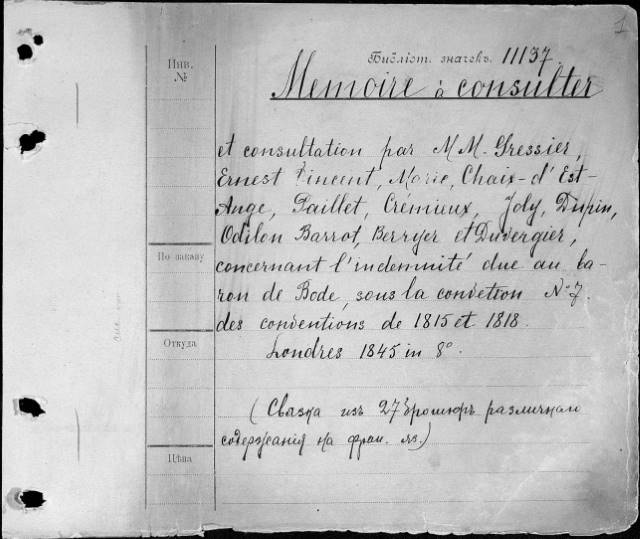 1
Библіот. значекъ. 11137.
Инв.
№
Memoire à consulter
et consultation par M M. Gressier,
Ernest Vincent, Marie, Chaix-d'Est-
Ange, Paillet, Crémieux, Joly, Dupin,
Odilon Barrot, Berryer et Duvergier,
concernant l'indemnité due au ba-
ron de Bode, sous la condition N° 7.
des conventions de 1815 et 1818.
Londres 1845 in 8°.
(Связка изъ 27 брошюръ различнаго
содержанія на фран. яз.)
По заказу
Откуда
Цѣна